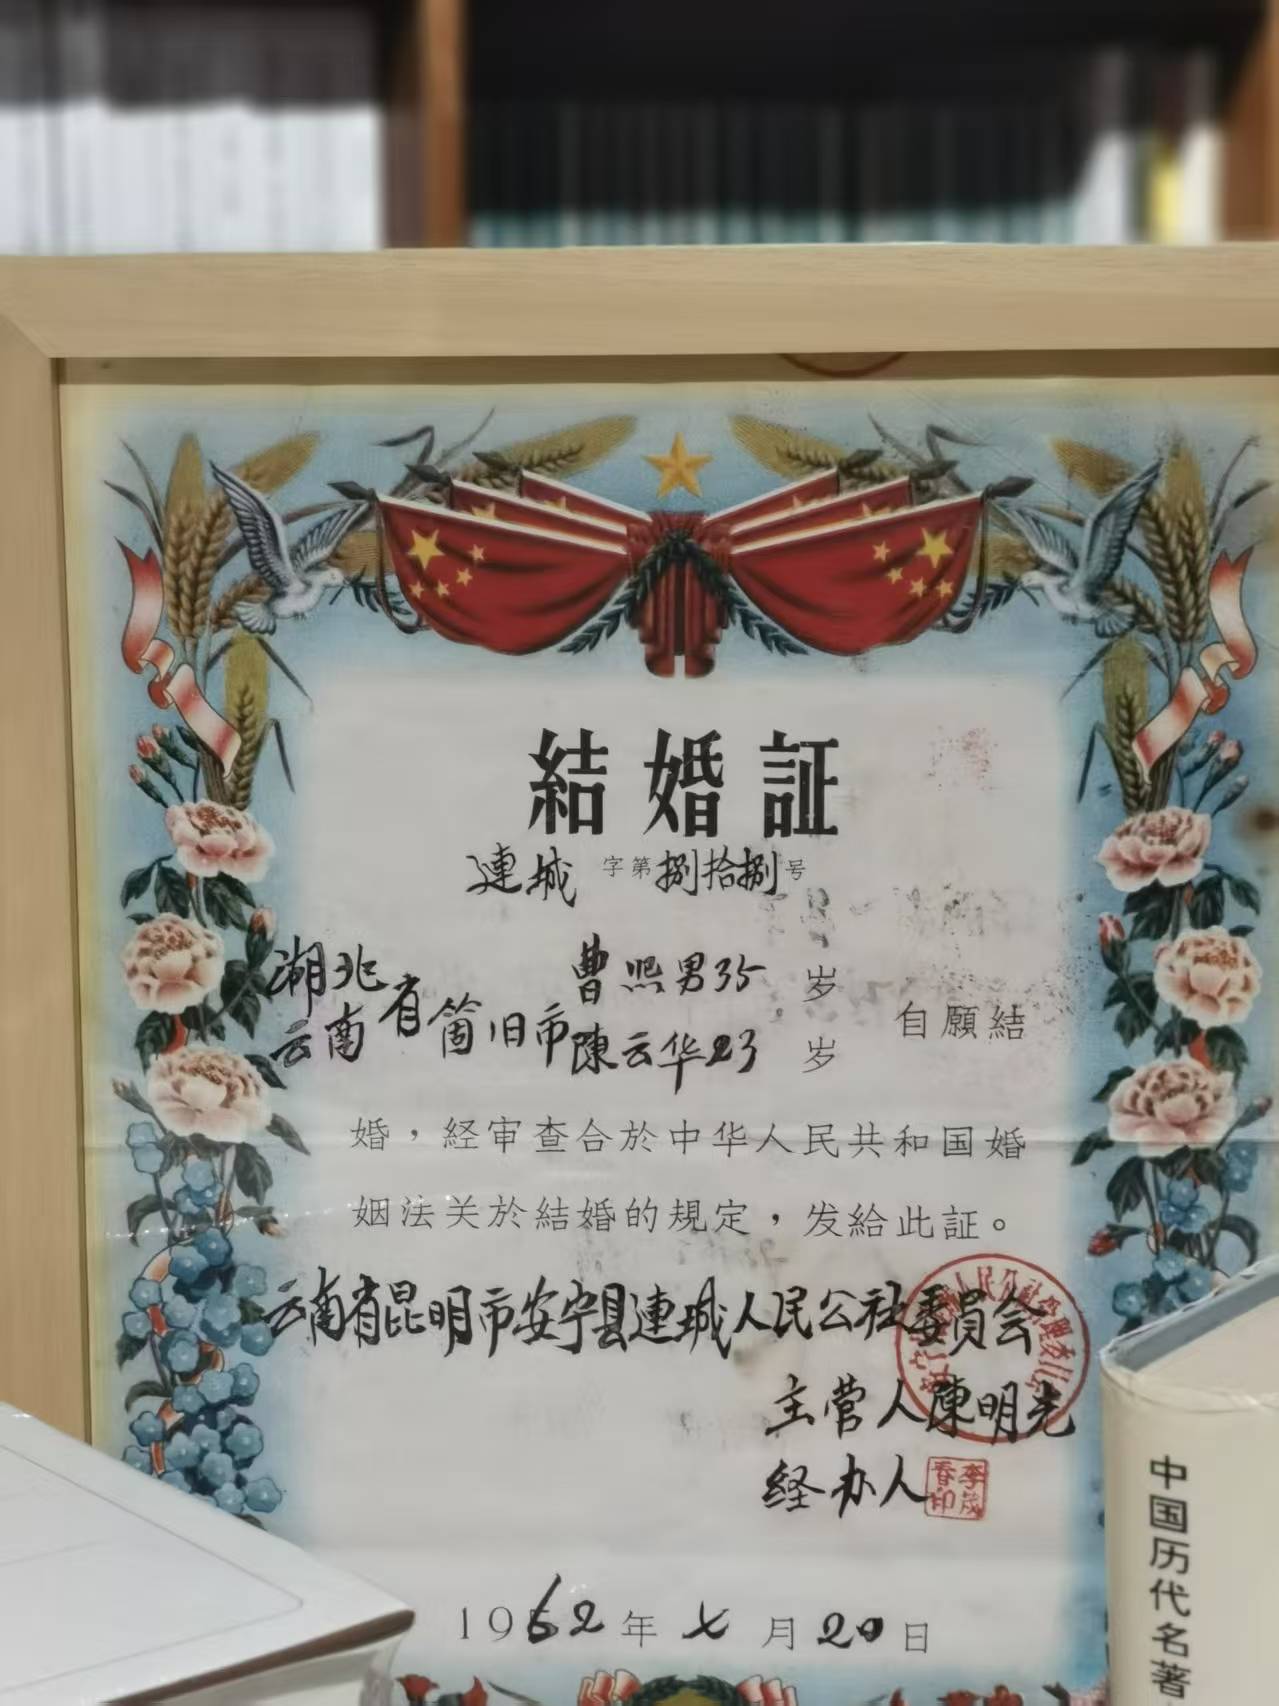 結婚証
連城 字第捌拾捌号
湖北
云南
省箇旧市
曹熙男35岁
陳云华23岁
自願結
婚，経审查合於中华人民共和国婚
姻法关於結婚的規定，发給此証。
云南省昆明市安宁县連城人民公社委員会
主营人陳明光
経办人
李茂春印
1962年七月20日
中国历代名著